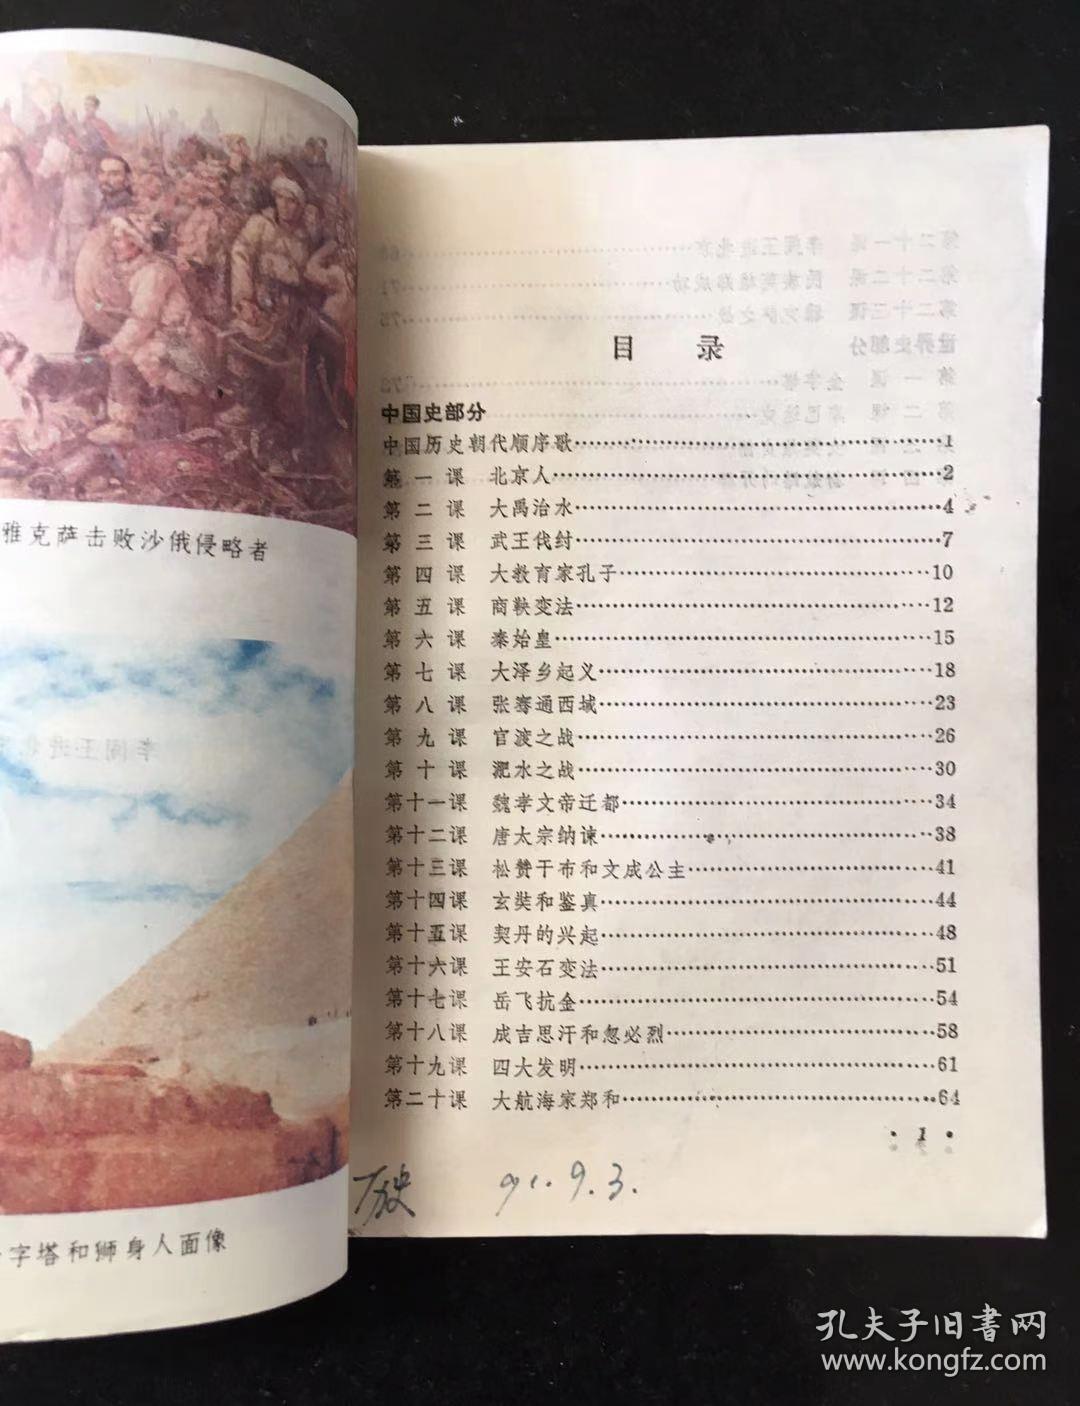 雅克萨击败沙俄侵略者
字塔和狮身人面像
目 录
中国史部分
中国历史朝代顺序歌……1
第一课 北京人……2
第二课 大禹治水……4
第三课 武王伐纣……7
第四课 大教育家孔子……10
第五课 商鞅变法……12
第六课 秦始皇……15
第七课 大泽乡起义……18
第八课 张骞通西域……23
第九课 官渡之战……26
第十课 淝水之战……30
第十一课 魏孝文帝迁都……34
第十二课 唐太宗纳谏……38
第十三课 松赞干布和文成公主……41
第十四课 玄奘和鉴真……44
第十五课 契丹的兴起……48
第十六课 王安石变法……51
第十七课 岳飞抗金……54
第十八课 成吉思汗和忽必烈……58
第十九课 四大发明……61
第二十课 大航海家郑和……64
·1·
历史 91.9.3.
孔夫子旧書网
www.kongfz.com